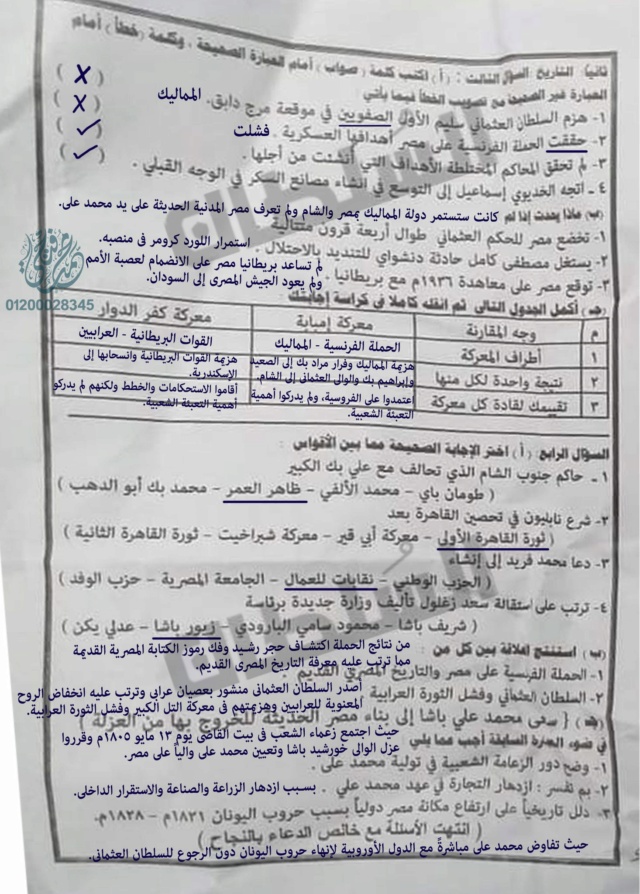 ثانيا: التاريخ: السؤال الثالث: (أ) اكتب كلمة (صواب) أمام العبارة الصحيحة، وكلمة (خطأ) أمام
العبارة غير الصحيحة مع تصويب الخطأ فيما يأتي
١- هزم السلطان العثماني سليم الأول الصفويين في موقعة مرج دابق. المماليك ( X )
٢- حققت الحملة الفرنسية على مصر أهدافها العسكرية. فشلت ( X )
٣- لم تحقق المحاكم المختلطة الأهداف التي أنشئت من أجلها. ( ✓ )
٤- اتجه الخديوي إسماعيل إلى التوسع في انشاء مصانع السكر في الوجه القبلي. ( ✓ )
(ب) ماذا يحدث إذا لم كانت ستستمر دولة المماليك بمصر والشام ولم تعرف مصر المدنية الحديثة على يد محمد على.
١- تخضع مصر للحكم العثماني طوال أربعة قرون متتالية
٢- يستغل مصطفى كامل حادثة دنشواي للتنديد بالاحتلال. استمرار اللورد كرومر فى منصبه.
٣- توقع مصر على معاهدة ١٩٣٦م مع بريطانيا. لم تساعد بريطانيا مصر على الانضمام لعصبة الأمم
ولم يعود الجيش المصرى إلى السودان.
01200028345
(جـ) أكمل الجدول التالى ثم انقله كاملا في كراسة إجابتك
م وجه المقارنة معركة إمبابة معركة كفر الدوار
١ أطراف المعركة الحملة الفرنسية - المماليك القوات البريطانية - العرابيين
٢ نتيجة واحدة لكل منها هزيمة المماليك وفرار مراد بك إلى الصعيد وإبراهيم بك والوالى العثمانى إلى الشام. هزيمة القوات البريطانية وانسحابها إلى الإسكندرية.
٣ تقييمك لقادة كل معركة اعتمدوا على الفروسية، ولم يدركوا أهمية التعبئة الشعبية. أقاموا الاستحكامات والخطط ولكنهم لم يدركو أهمية التعبئة الشعبية.
السؤال الرابع: (أ) اختر الإجابة الصحيحة مما بين الأقواس:
١- حاكم جنوب الشام الذي تحالف مع علي بك الكبير
( طومان باي - محمد الألفي - ظاهر العمر - محمد بك أبو الدهب )
٢- شرع نابليون في تحصين القاهرة بعد
( ثورة القاهرة الأولى - معركة أبي قير - معركة شبراخيت - ثورة القاهرة الثانية )
٣- دعا محمد فريد إلى إنشاء
( الحزب الوطني - نقابات للعمال - الجامعة المصرية - حزب الوفد )
٤- ترتب على استقالة سعد زغلول تأليف وزارة جديدة برئاسة
( شريف باشا - محمود سامي البارودي - زيور باشا - عدلي يكن )
(ب) استنتج العلاقة بين كل من : من نتائج الحملة اكتشاف حجر رشيد وفك رموز الكتابة المصرية القديمة
مما ترتب عليه معرفة التاريخ المصرى القديم.
١- الحملة الفرنسية على مصر والتاريخ المصري القديم
٢- السلطان العثماني وفشل الثورة العرابية أصدر السلطان العثمانى منشور بعصيان عرابى وترتب عليه انخفاض الروح
المعنوية للعرابيين وهزيمتهم فى معركة التل الكبير وفشل الثورة العرابية.
(جـ) { سعى محمد علي باشا إلى بناء مصر الحديثة للخروج بها من العزلة }
في ضوء العبارة السابقة أجب عما يلي حيث اجتمع زعماء الشعب فى بيت القاضى يوم ١٣ مايو ١٨٠٥م وقرروا
عزل الوالى خورشيد باشا وتعيين محمد على والياً على مصر.
١- وضح دور الزعامة الشعبية في تولية محمد على.
٢- بم تفسر: ازدهار التجارة في عهد محمد علي. بسبب ازدهار الزراعة والصناعة والاستقرار الداخلى.
٣- دلل تاريخياً على ارتفاع مكانة مصر دولياً بسبب حروب اليونان ١٨٢١م - ١٨٢٨م.
( انتهت الأسئلة مع خالص الدعاء بالنجاح )
حيث تفاوض محمد على مباشرةً مع الدول الأوروبية لإنهاء حروب اليونان دون الرجوع للسلطان العثمانى.